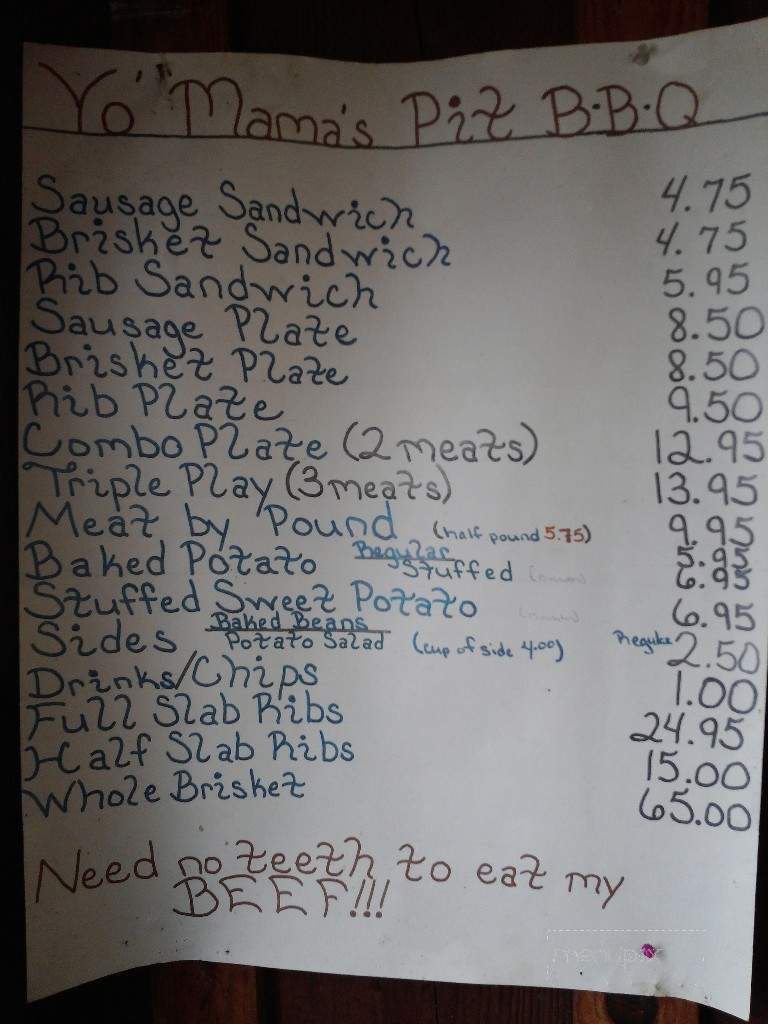 Yo' Mama's Pit B·B·Q
Sausage Sandwich 4.75
Brisket Sandwich 4.75
Rib Sandwich 5.95
Sausage Plate 8.50
Brisket Plate 8.50
Rib Plate 9.50
Combo Plate (2 meats) 12.95
Triple Play (3 meats) 13.95
Meat by Pound (half pound 5.75) 9.95
Baked Potato Regular 5.95
Stuffed 6.95
Stuffed Sweet Potato 6.95
Sides Baked Beans
Potato Salad (cup of side 4.00) 2.50
Drinks/Chips 1.00
Full Slab Ribs 24.95
Half Slab Ribs 15.00
Whole Brisket 65.00
Need no teeth to eat my
BEEF!!!
menupix